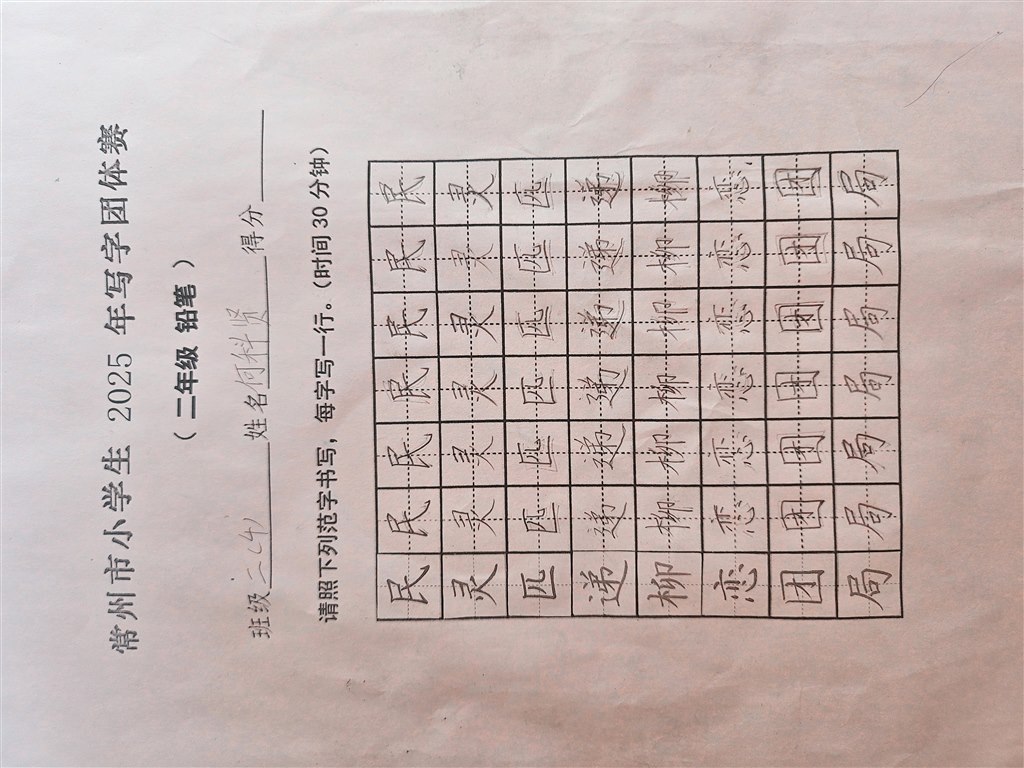 常州市小学生 2025 年写字团体赛
（ 二年级 铅笔 ）
班级 二 姓名 何科贤 得分
请照下列范字书写，每字写一行。（时间 30 分钟）
民 民 民 民 民 民 民
灵 灵 灵 灵 灵 灵 灵
匹 匹 匹 匹 匹 匹 匹
递 递 递 递 递 递 递
柳 柳 柳 柳 柳 柳 柳
恋 恋 恋 恋 恋 恋 恋
团 团 团 团 团 团 团
局 局 局 局 局 局 局